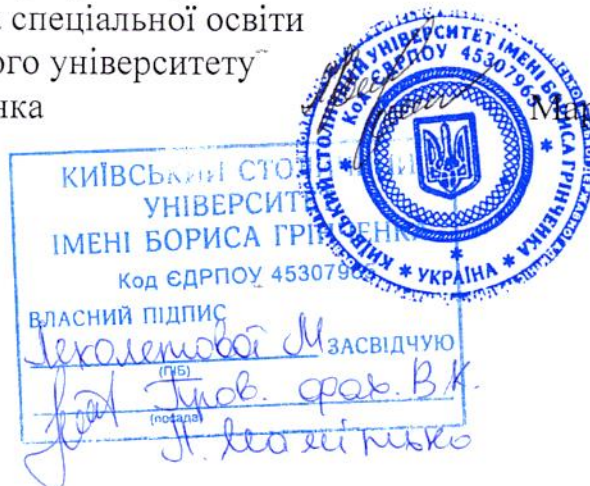 а спеціальної освіти
ого університету
нка
Мар
КИЇВСЬКИЙ СТОЛИЧНИЙ УНІВЕРСИТЕТ ІМЕНІ БОРИСА ГРІНЧЕНКА
Код ЄДРПОУ 45307965
* УКРАЇНА *
КИЇВСЬКИЙ СТО
УНІВЕРСИТ
ІМЕНІ БОРИСА ГРІНЧЕНКА
Код ЄДРПОУ 45307965
ВЛАСНИЙ ПІДПИС
М ЗАСВІДЧУЮ
(ПІБ)
Пров. фах. В.К.
(посада)